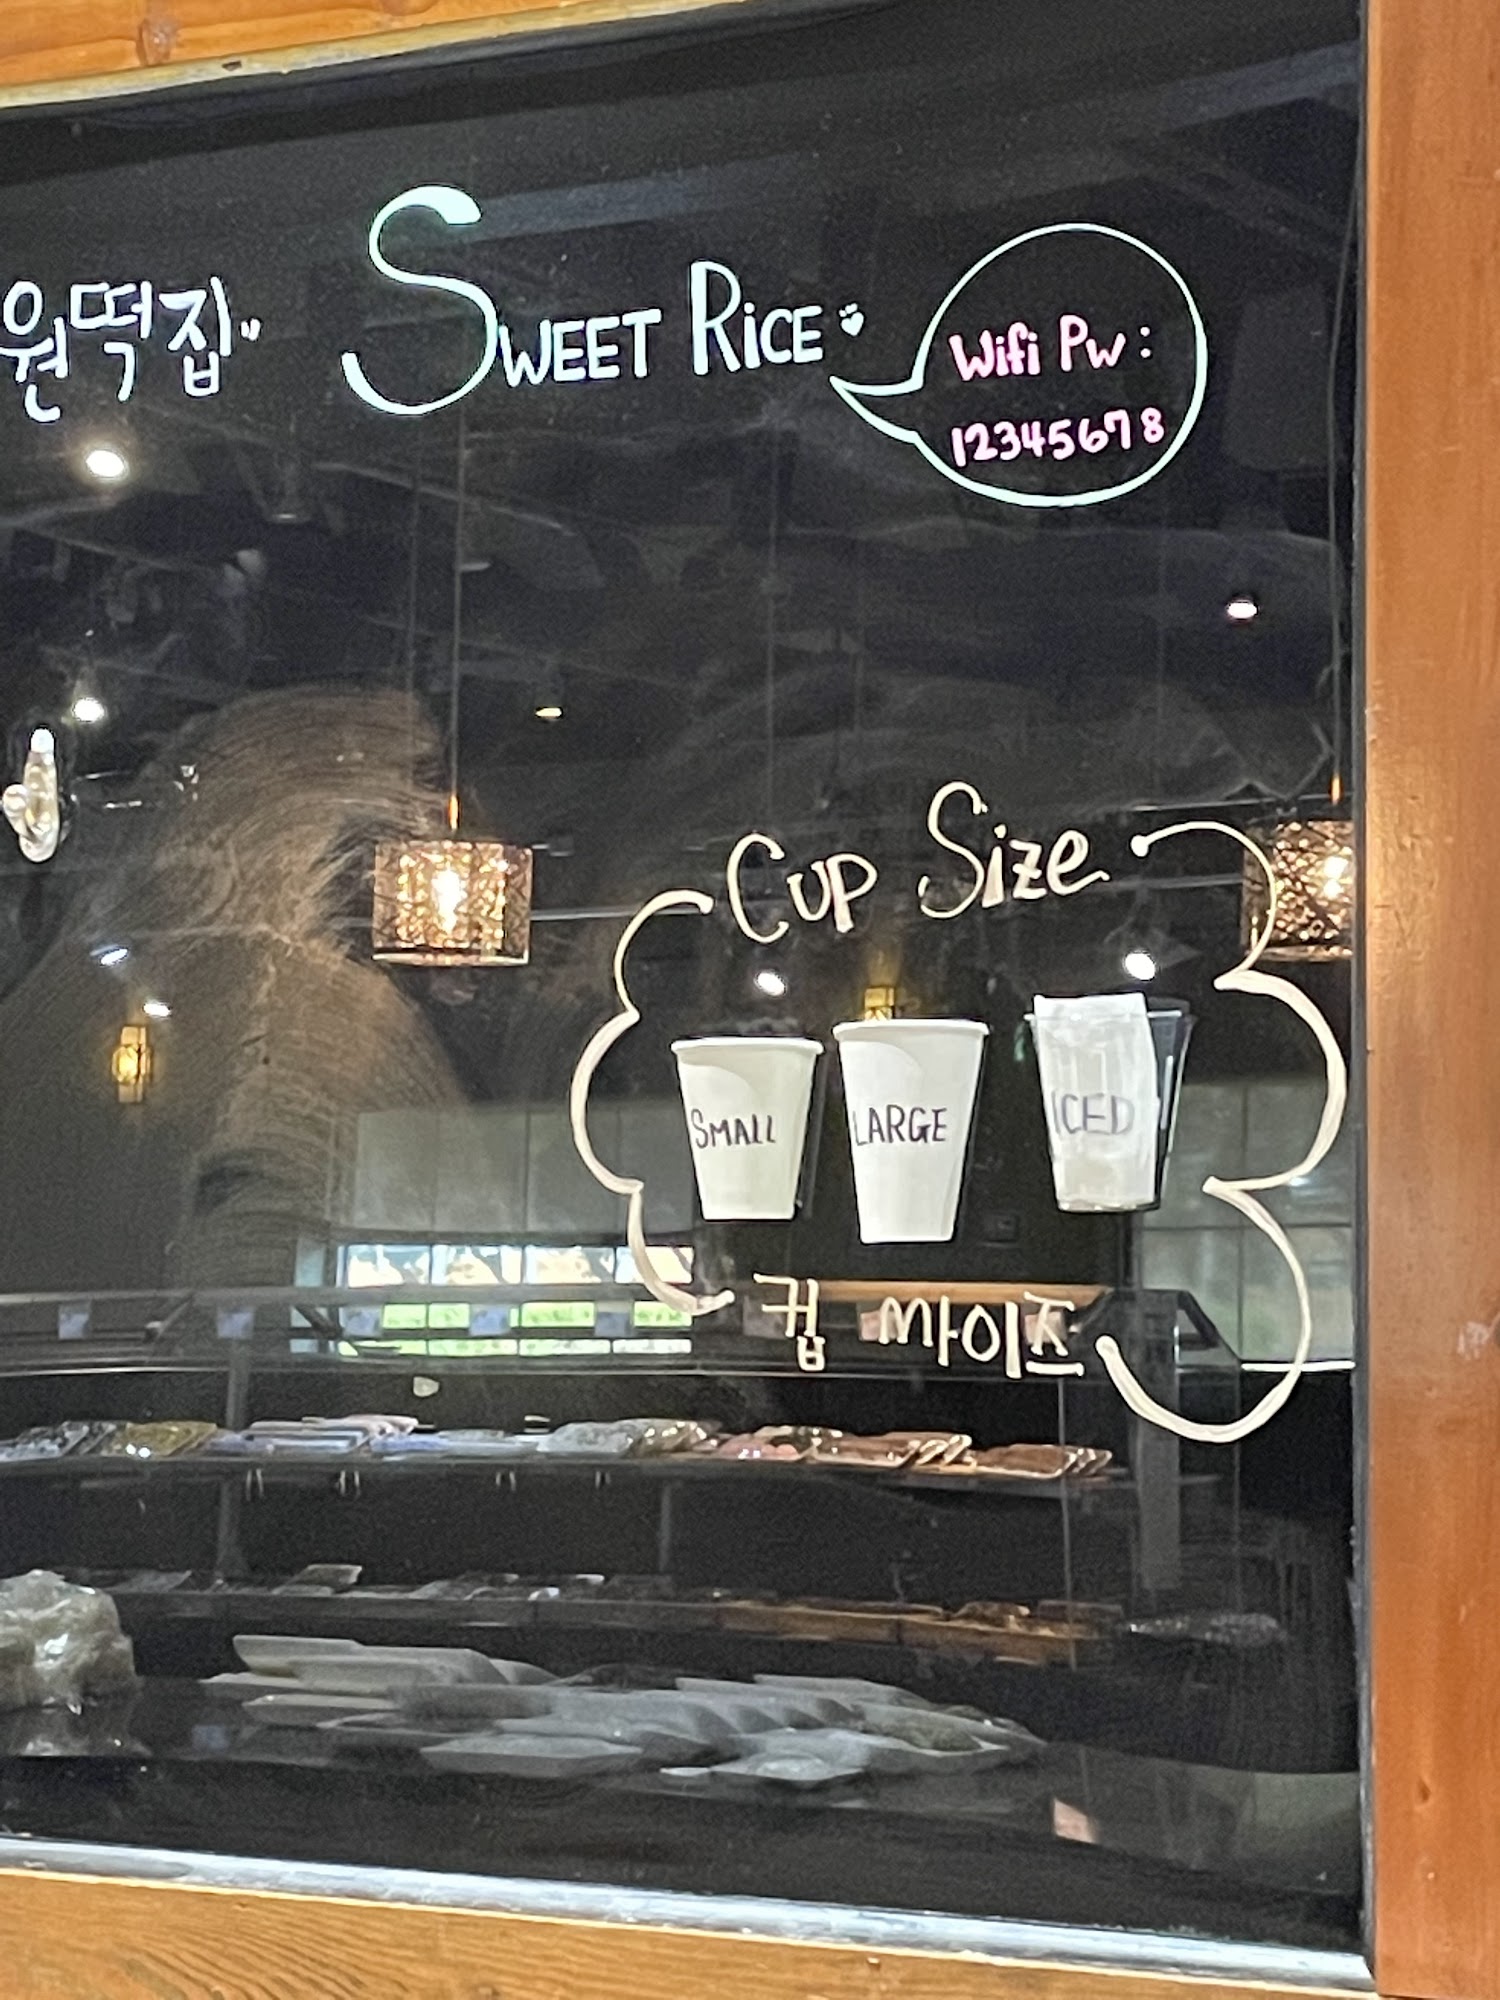 원떡집" SWEET RICE
Wifi Pw:
12345678
Cup Size
SMALL
LARGE
ICED
컵 싸이즈